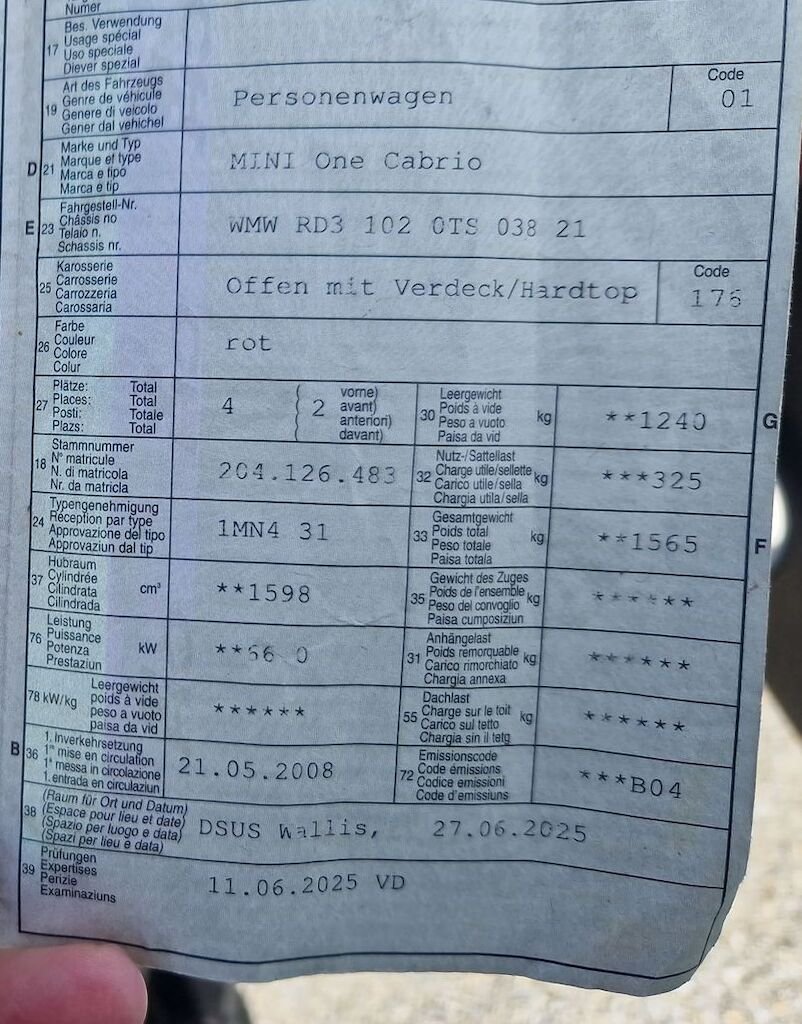 Numer
17 Bes. Verwendung
Usage spécial
Uso speciale
Diever spezial
19 Art des Fahrzeugs
Genre de véhicule
Genere di veicolo
Gener dal vehichel
Personenwagen
Code
01
D 21 Marke und Typ
Marque et type
Marca e tipo
Marca e tip
MINI One Cabrio
E 23 Fahrgestell-Nr.
Châssis no
Telaio n.
Schassis nr.
WMW RD3 102 0TS 038 21
25 Karosserie
Carrosserie
Carrozzeria
Carossaria
Offen mit Verdeck/Hardtop
Code
176
26 Farbe
Couleur
Colore
Colur
rot
27 Plätze: Total
Places: Total
Posti: Totale
Plazs: Total
4
( 2 vorne)
avant)
anteriori)
davant)
30 Leergewicht
Poids à vide
Peso a vuoto
Paisa da vid
kg
**1240
G
18 Stammnummer
N° matricule
N. di matricola
Nr. da matricla
204.126.483
32 Nutz-/Sattellast
Charge utile/sellette
Carico utile/sella
Chargia utila/sella
kg
***325
24 Typengenehmigung
Réception par type
Approvazione del tipo
Approvaziun dal tip
1MN4 31
33 Gesamtgewicht
Poids total
Peso totale
Paisa totala
kg
**1565
F
37 Hubraum
Cylindrée
Cilindrata
Cilindrada
cm³
**1598
35 Gewicht des Zuges
Poids de l'ensemble
Peso del convoglio
Paisa cumposiziun
kg
******
76 Leistung
Puissance
Potenza
Prestaziun
kW
31 Anhängelast
Poids remorquable
Carico rimorchiato
Chargia annexa
kg
******
78 kW/kg
Leergewicht
poids à vide
peso a vuoto
paisa da vid
******
55 Dachlast
Charge sur le toit
Carico sul tetto
Chargia sin il tetg
kg
******
B 36 1. Inverkehrsetzung
1re mise en circulation
1a messa in circolazione
1. entrada en circulaziun
21.05.2008
72 Emissionscode
Code émissions
Codice emissioni
Code d'emissiuns
***B04
38 (Raum für Ort und Datum)
(Espace pour lieu et date)
(Spazio per luogo e data)
(Spazi per lieu e data)
DSUS Wallis, 27.06.2025
39 Prüfungen
Expertises
Perizie
Examinaziuns
11.06.2025 VD